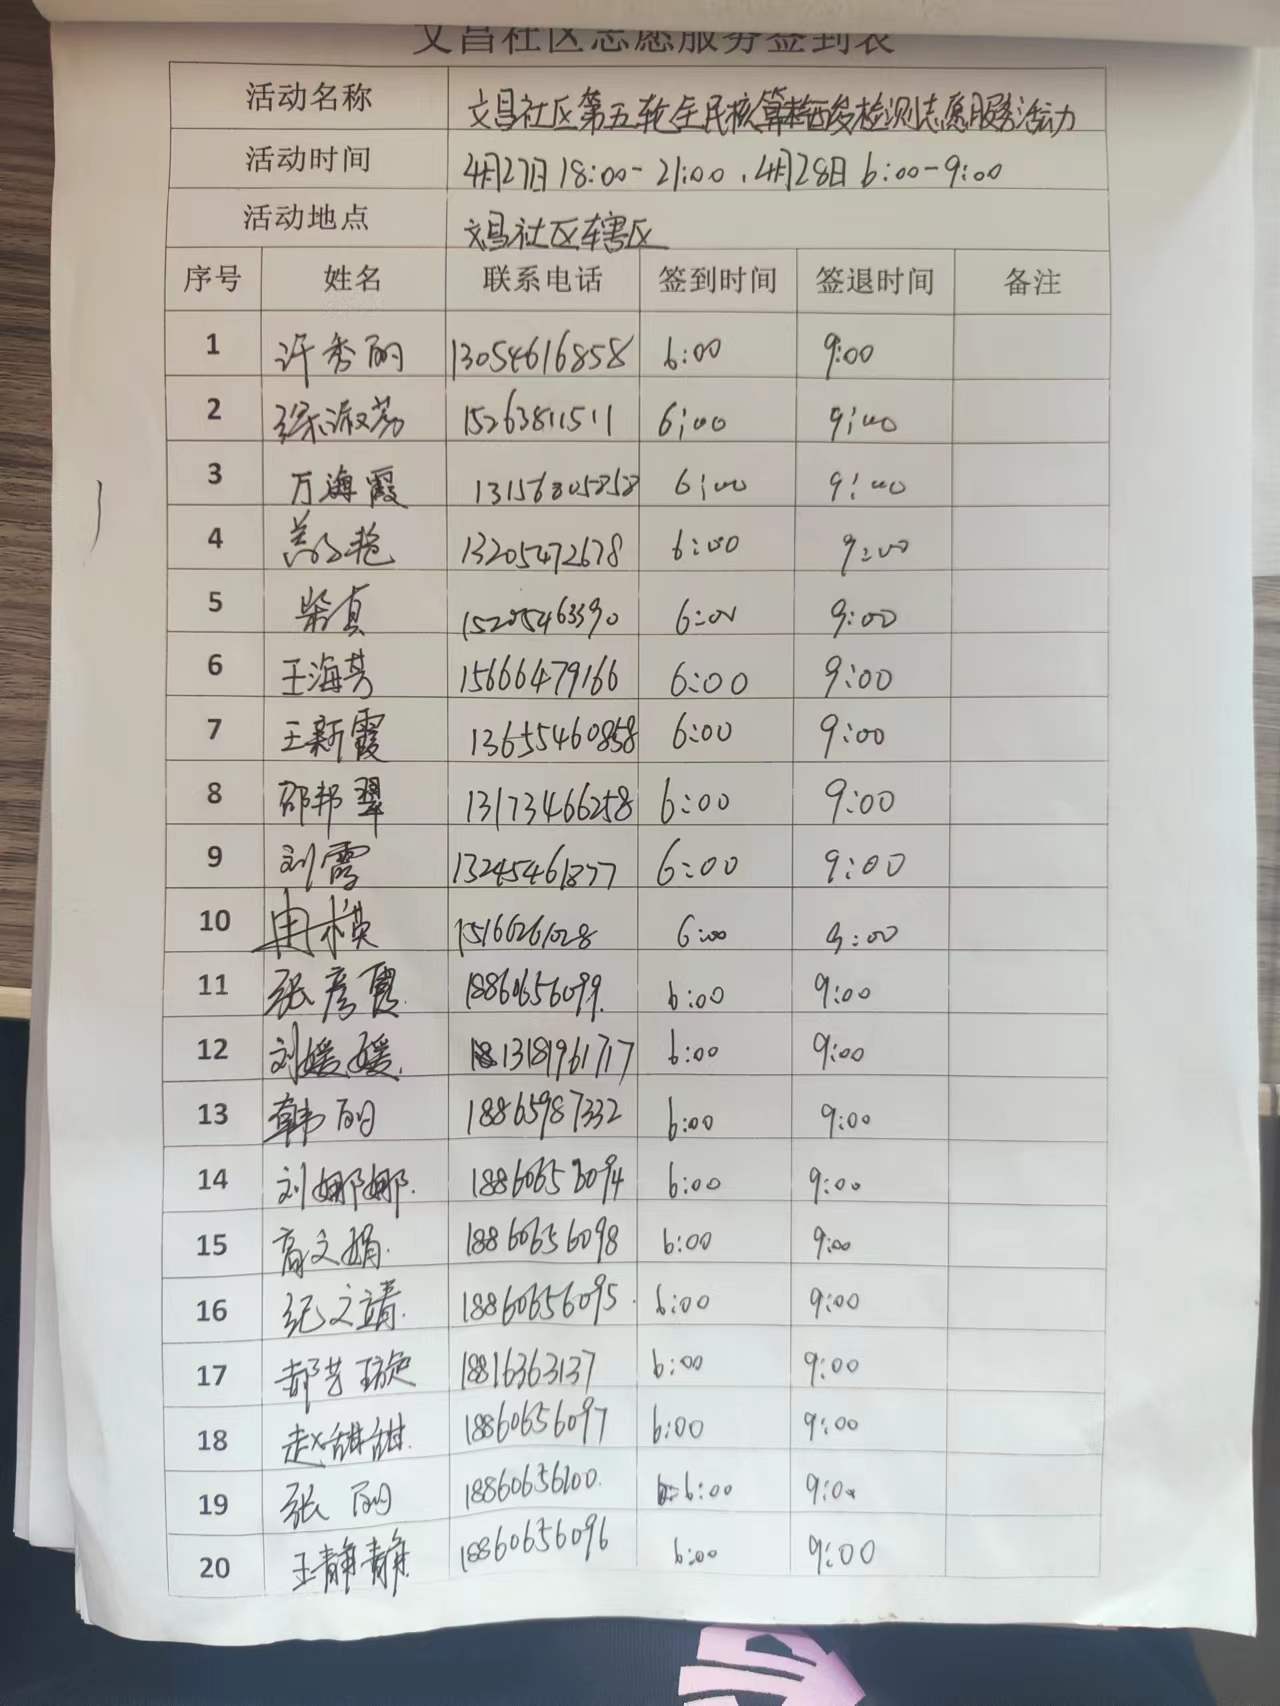 文昌社区志愿服务签到表
活动名称 文昌社区第五轮全民核酸检测志愿服务活动
活动时间 4月27日 18:00-21:00、4月28日 6:00-9:00
活动地点 文昌社区辖区
序号 姓名 联系电话 签到时间 签退时间 备注
1 许秀丽 13054616858 6:00 9:00
2 徐淑荔 15263811511 6:00 9:00
3 万海霞 13156805858 6:00 9:00
4 13205472678 6:00 9:00
5 柴真 15205463390 6:00 9:00
6 王海芳 15666479166 6:00 9:00
7 王新霞 13655460858 6:00 9:00
8 邵邦翠 13173466258 6:00 9:00
9 刘霞 13245461877 6:00 9:00
10 冉模 15166261028 6:00 9:00
11 张彦霞 18860656099 6:00 9:00
12 刘媛媛 13181961717 6:00 9:00
13 韩丽 18865987332 6:00 9:00
14 刘娜娜 18860656094 6:00 9:00
15 高文娟 18860656098 6:00 9:00
16 纪文靖 18860656095 6:00 9:00
17 郝艺璇 18816363137 6:00 9:00
18 赵甜甜 18860656097 6:00 9:00
19 张丽 18860656100 6:00 9:00
20 王静静 18860656096 6:00 9:00